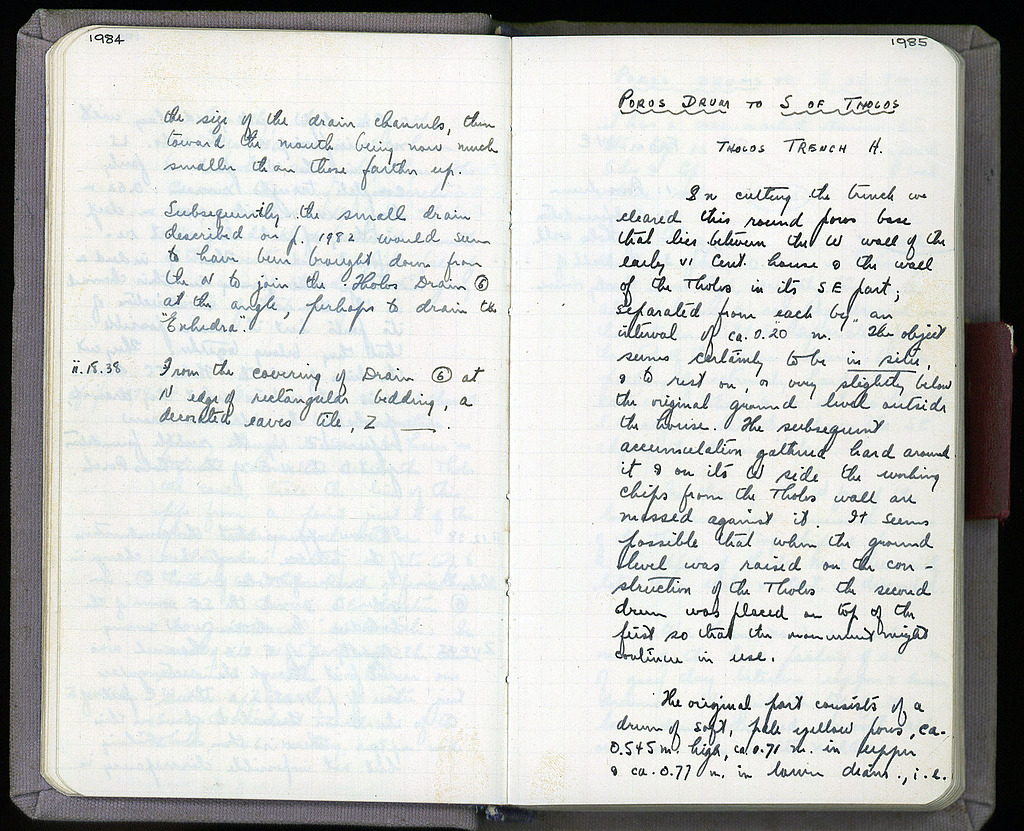 1984
the size of the drain channels, then
toward the mouth being now much
smaller than those farther up.
Subsequently the small drain
described on p. 1982 would seem
to have been brought down from
the N to join the Tholos Drain ⑥
at the angle, perhaps to drain the
"Exhedra".
ii.18.38 From the covering of Drain ⑥ at
N edge of rectangular bedding, a
decorated eaves tile, Z —.
1985
POROS DRUM TO S OF THOLOS
THOLOS TRENCH H.
In cutting the trench we
cleared this round poros base
that lies between the W wall of the
early VI Cent. house & the wall
of the Tholos in its SE part;
separated from each by an
interval of ca. 0.20 m. The object
seems certainly to be in situ,
& to rest on, or very slightly below
the original ground level outside
the house. The subsequent
accumulation gathered hard around
it & on its W side the working
chips from the Tholos wall are
massed against it. It seems
possible that when the ground
level was raised on the con-
struction of the Tholos the second
drum was placed on top of the
first so that the monument might
continue in use.
The original part consists of a
drum of soft, pale yellow poros, ca.
0.545 m. high, ca. 0.71 m. in upper
& ca. 0.77 m. in lower diam., i.e.